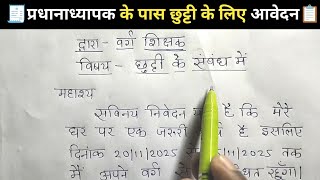 प्रधानाध्यापक के पास छुट्टी के लिए आवेदन
द्वारा - वर्ग शिक्षक
विषय - छुट्टी के संबंध में
महाशय
सविनय निवेदन है कि मेरे
घर पर एक जरूरी है इसलिए
दिनांक 20/11/2025 /11/2025 तक
मैं अपने वर्ग रहूँगा।